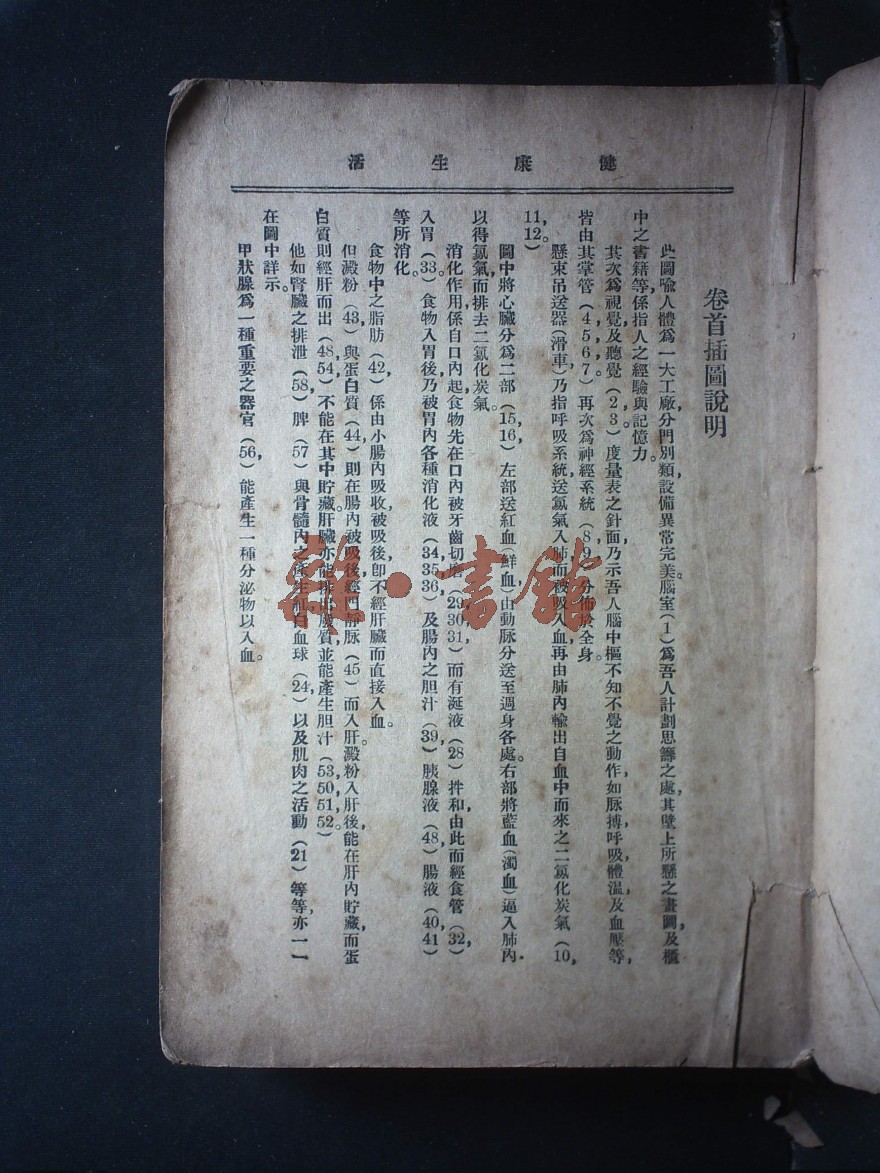 健康生活
卷首插圖說明
此圖喻人體爲一大工廠，分門別類，設備異常完美。腦室（1）爲吾人計劃思籌之處，其壁上所懸之畫圖及櫃
中之書籍等，係指人之經驗與記憶力。
其次爲視覺及聽覺（2，3）。度量表之針面，乃示吾人腦中樞不知不覺之動作，如脉搏，呼吸，體溫，及血壓等，
皆由其掌管（4，5，6，7）再次爲神經系統（8，9），分佈於全身。
懸束吊送器（滑車）乃指呼吸系統，送氯氣入肺，而被吸入血，再由肺內輸出自血中而來之二氯化炭氣（10，
11，12。）
圖中將心臟分爲二部（15，16）左部送紅血（鮮血）由動脉分送至週身各處。右部將藍血（濁血）逼入肺內，
以得氯氣而排去二氯化炭氣。
消化作用係自口內起，食物先在口內被牙齒切磨（29，30，31）而有涎液（28）拌和，由此而經食管（32，）
入胃（33）。食物入胃後，乃被胃內各種消化液（34，35，36）及腸內之胆汁（39，）胰腺液（48，）腸液（40，41）
等所消化。
食物中之脂肪（42，）係由小腸內吸收，被吸後，卽不經肝臟而直接入血。
但澱粉（43，）與蛋白質（44，）則在腸內被吸後，經門靜脉（45）而入肝。澱粉入肝後，能在肝內貯藏，而蛋
白質則經肝而出（48，54）不能在其中貯藏。肝臟亦能排出廢質，並能產生胆汁（53，50，51，52。）
他如腎臟之排泄（58，）脾（57）與骨髓內之產生紅白血球（24，）以及肌肉之活動（21）等等，亦一一
在圖中詳示。
甲狀腺爲一種重要之器官（56，）能產生一種分泌物以入血。
雜·書館